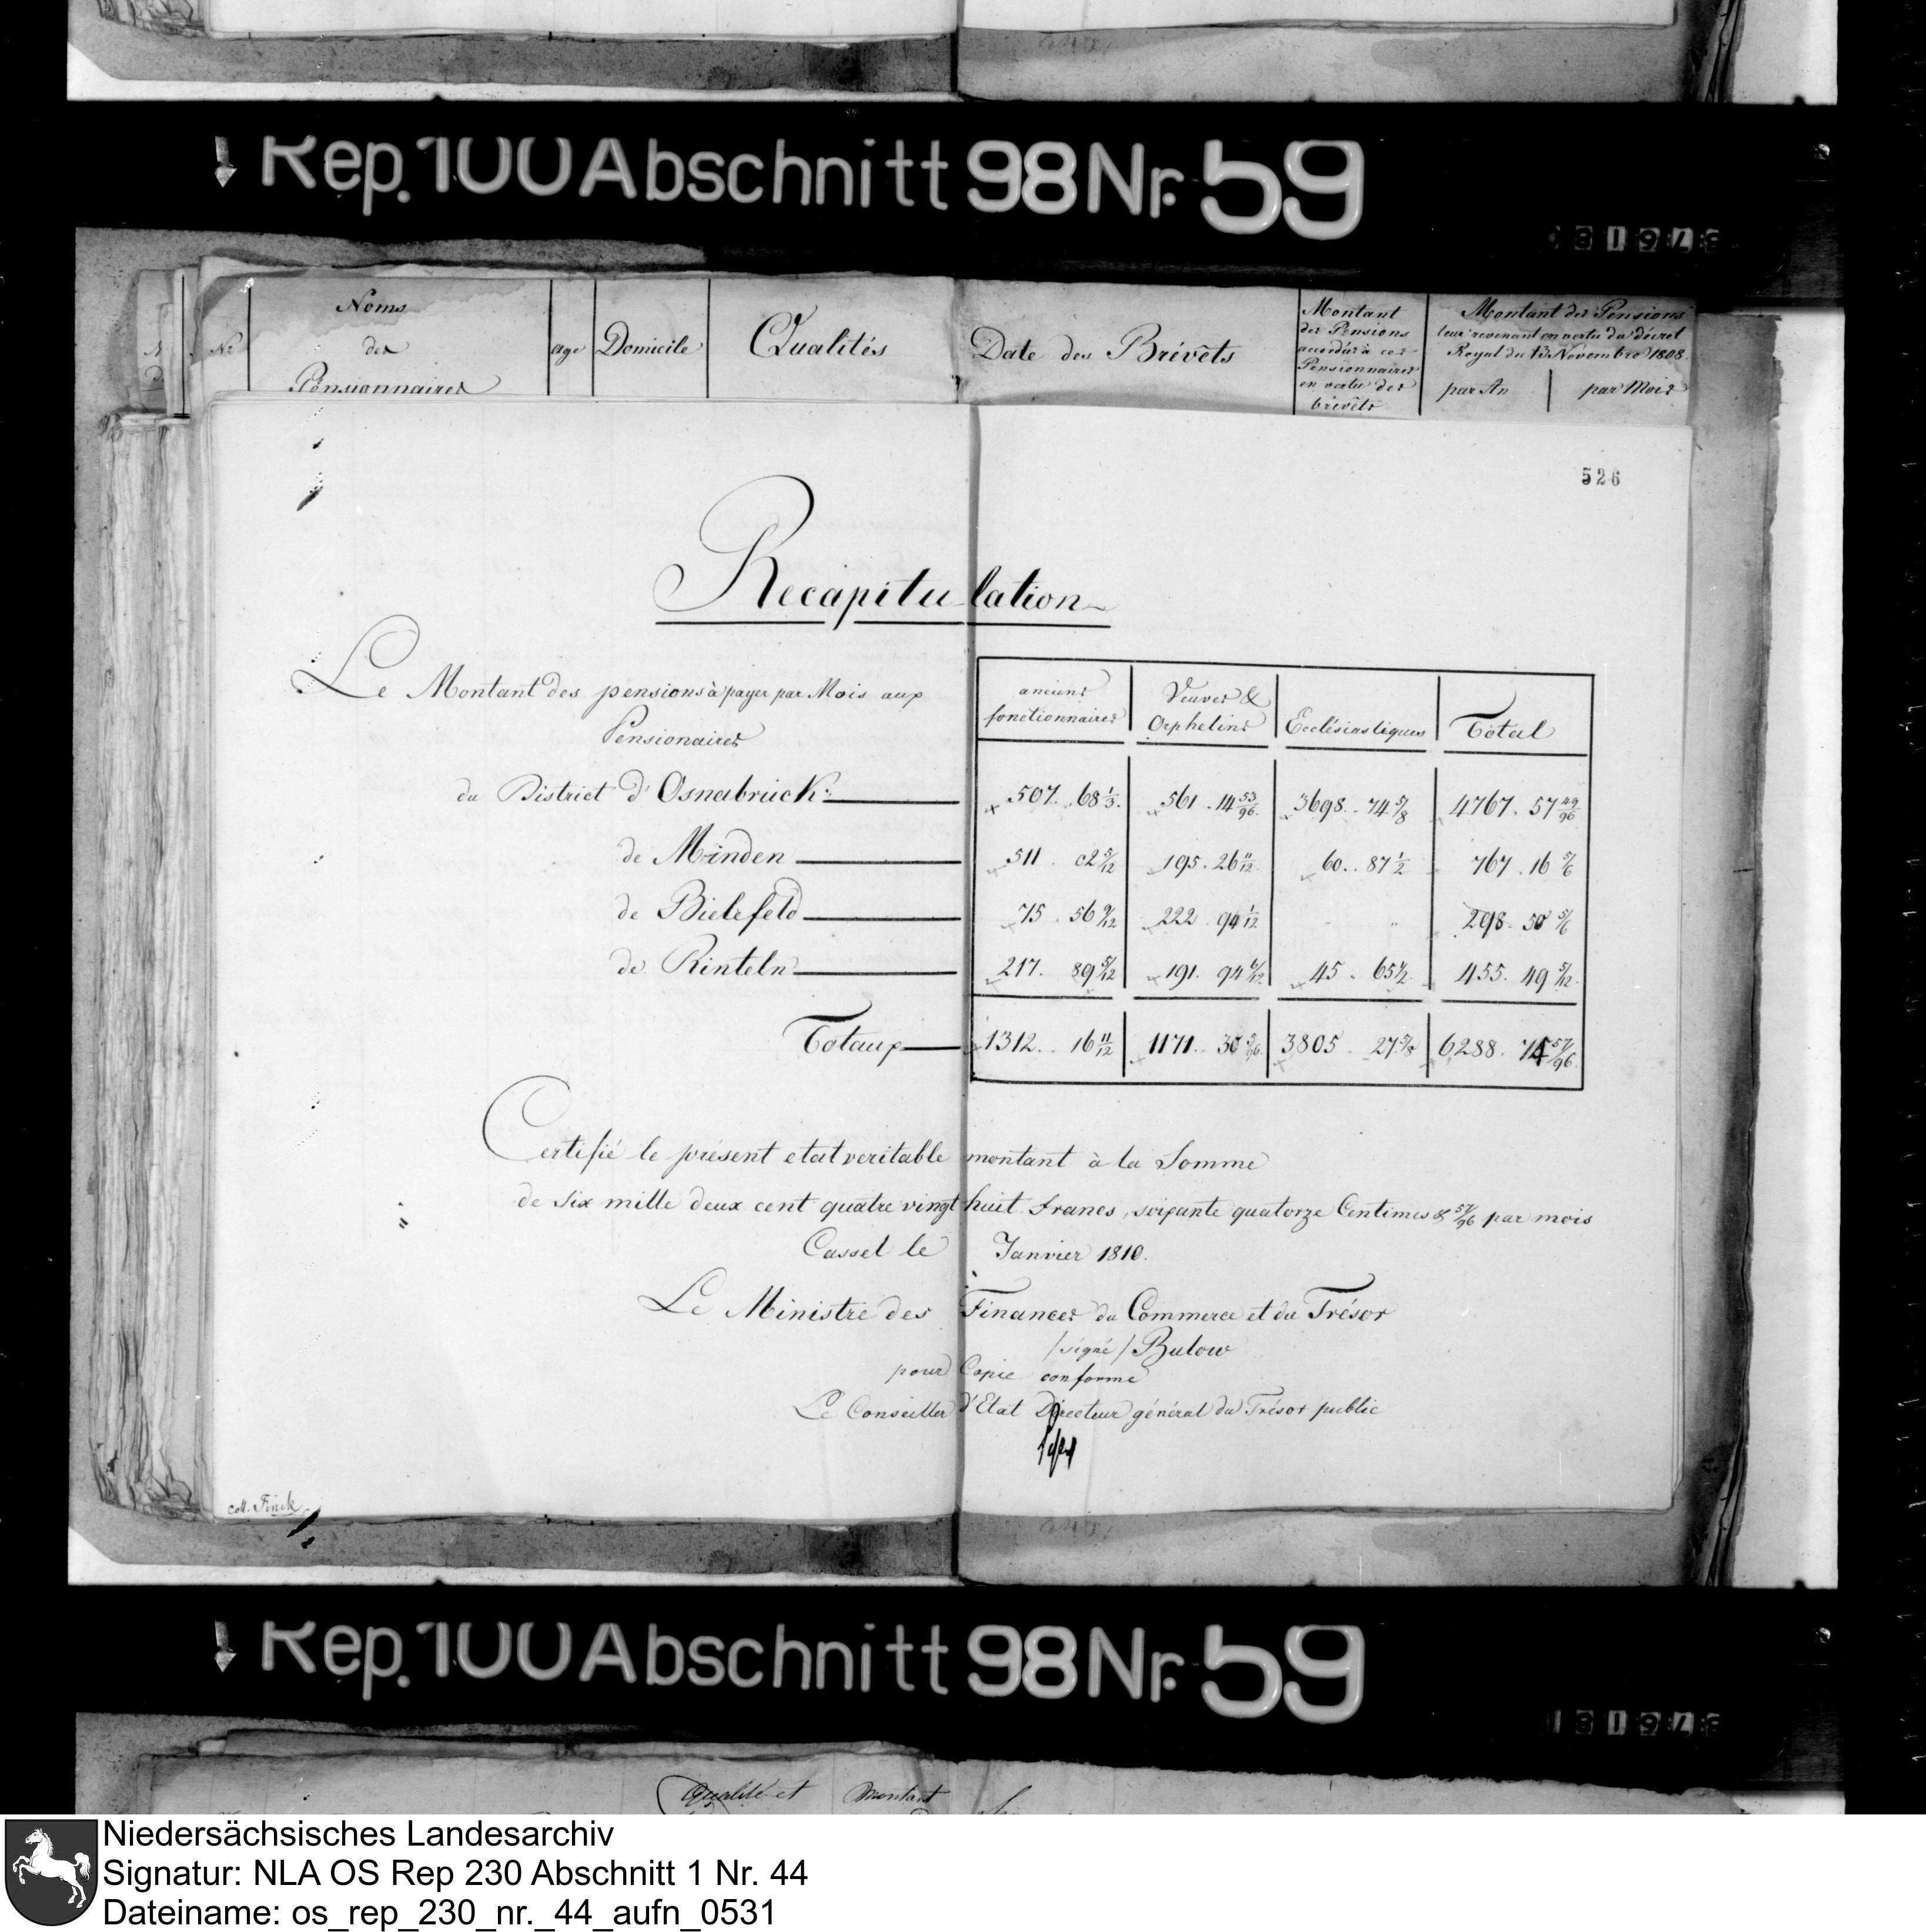 Rep. 100 Abschnitt 98 Nr. 59
Nr.
Noms
des
Pensionnaires
age
Domicile
Qualités
Date des Brévêts
Montant
des Pensions
accordés à ces
Pensionnaires
en vertu des
brévêts
Montant des Pensions
leur revenant en vertu du décret
Royal du 13 Novembre 1808.
par An
par Mois
526
Recapitulation
Le Montant des pensions à payer par Mois aux
Pensionaires
anciens
fonctionnaires
Veuves &
Orphelins
Ecclésiastiques
Total
du District d'Osnabrück 507. 68 1/3. 561. 14 53/96. 3698. 74 5/8 4767. 57 49/96
de Minden 511. 02 5/12 195. 26 11/12 60. 87 1/2 767. 16 5/6
de Bielefeld 75. 56 9/12 222. 94 1/12 298. 50 5/6
de Rinteln 217. 89 5/12 191. 94 6/12 45. 65 1/2 455. 49 5/12
Totaux 1312. 16 11/12 1171. 30 5/96 3805. 27 5/8 6288. 74 57/96
Certifié le présent etat veritable montant à la Somme
de Six mille deux cent quatre vingt huit francs, soixante quatorze Centimes & 57/96 par mois
Cassel le Janvier 1810.
Le Ministre des Finances du Commerce et du Trésor
/signé/ Bulow
pour Copie conforme
Le Conseiller d'Etat Directeur général du Trésor public
coll. Finck
Rep. 100 Abschnitt 98 Nr. 59
Qualité et Montant
Niedersächsisches Landesarchiv
Signatur: NLA OS Rep 230 Abschnitt 1 Nr. 44
Dateiname: os_rep_230_nr._44_aufn_0531